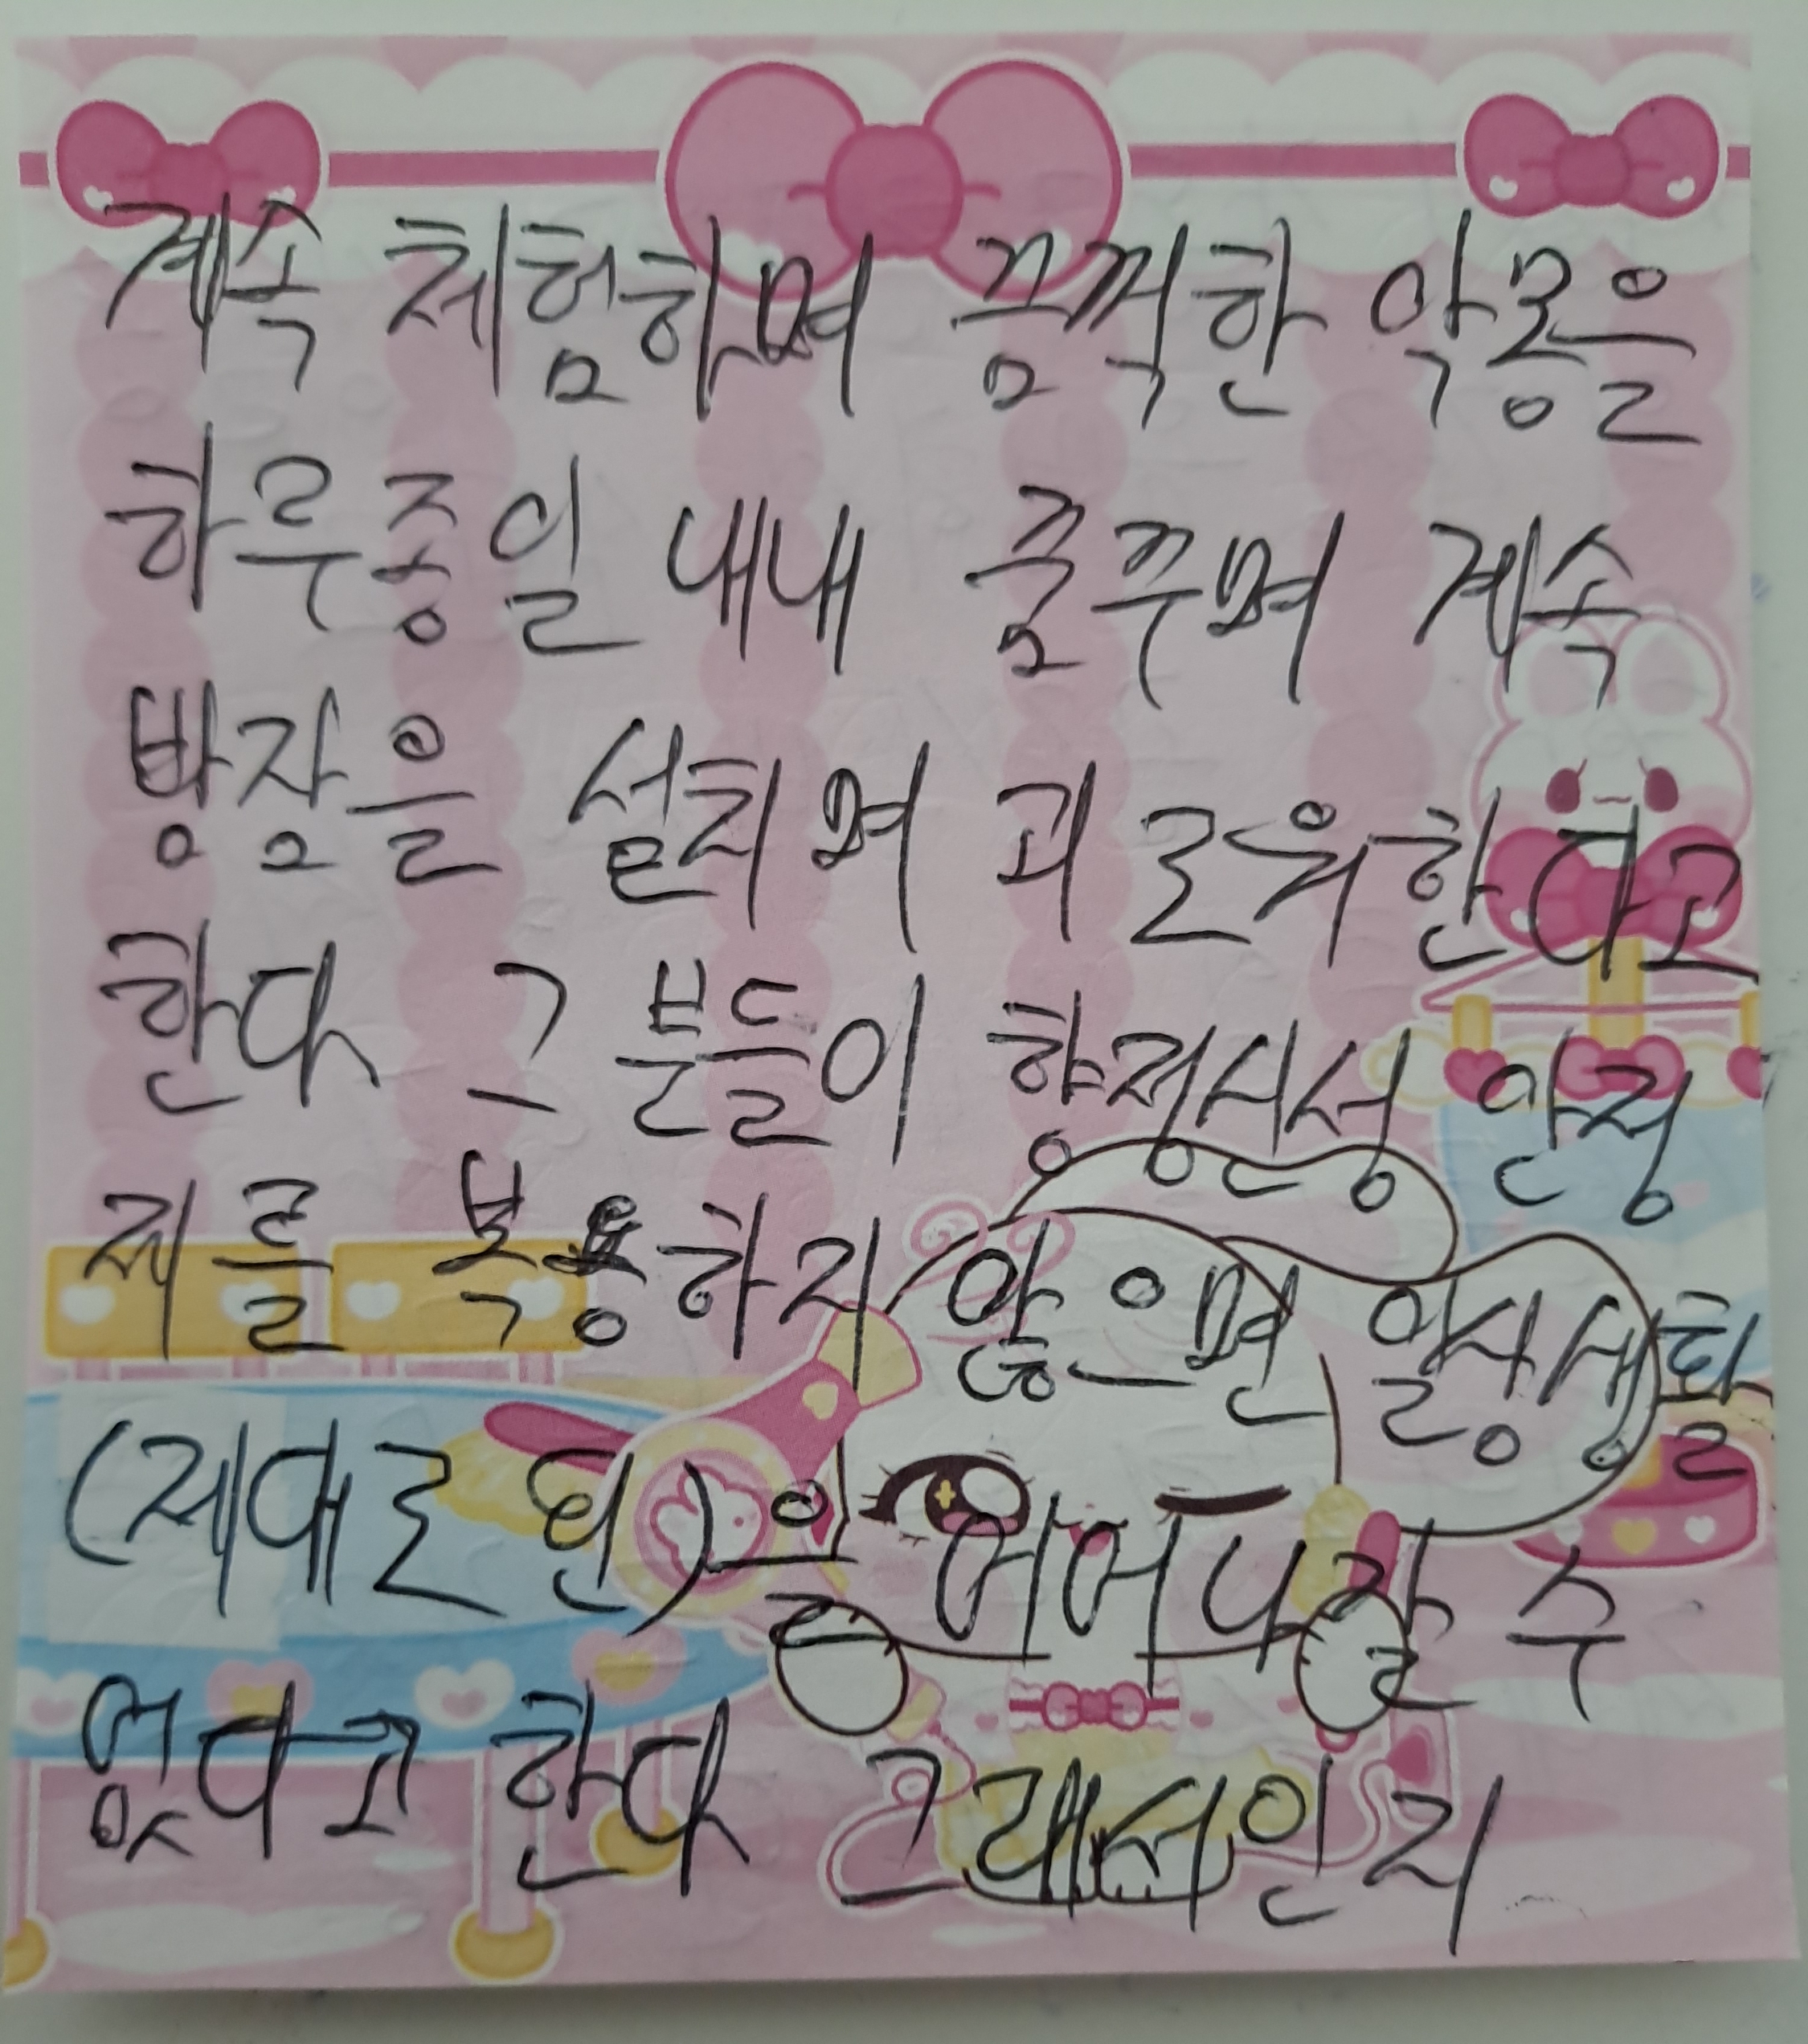 계속 체험하며 끔찍한 악몽을
하루종일 내내 줌꾸며 계속
밤잠을 설치며 괴로워한다고
한다 그 분들이 항정신성 안정
제를 복용하지 않으면 일상생활
(제대로 된)을 이어나갈 수
없다고 한다 그래서인지